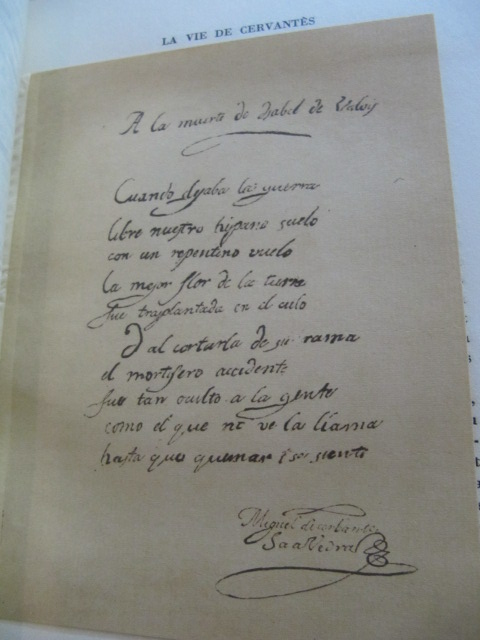 LA VIE DE CERVANTÈS
A la muerte de Isabel de Valoys
Cuando dejaba la guerra
libre nuestro hispano suelo
con un repentino vuelo
la mejor flor de la tierra
fue trasplantada en el cielo
Y al cortarla de su rama
el mortifero accidente
fue tan oculto a la gente
como el que no ve la llama
hasta que quemar se siente
Miguel de cerbantes
SaaVedra